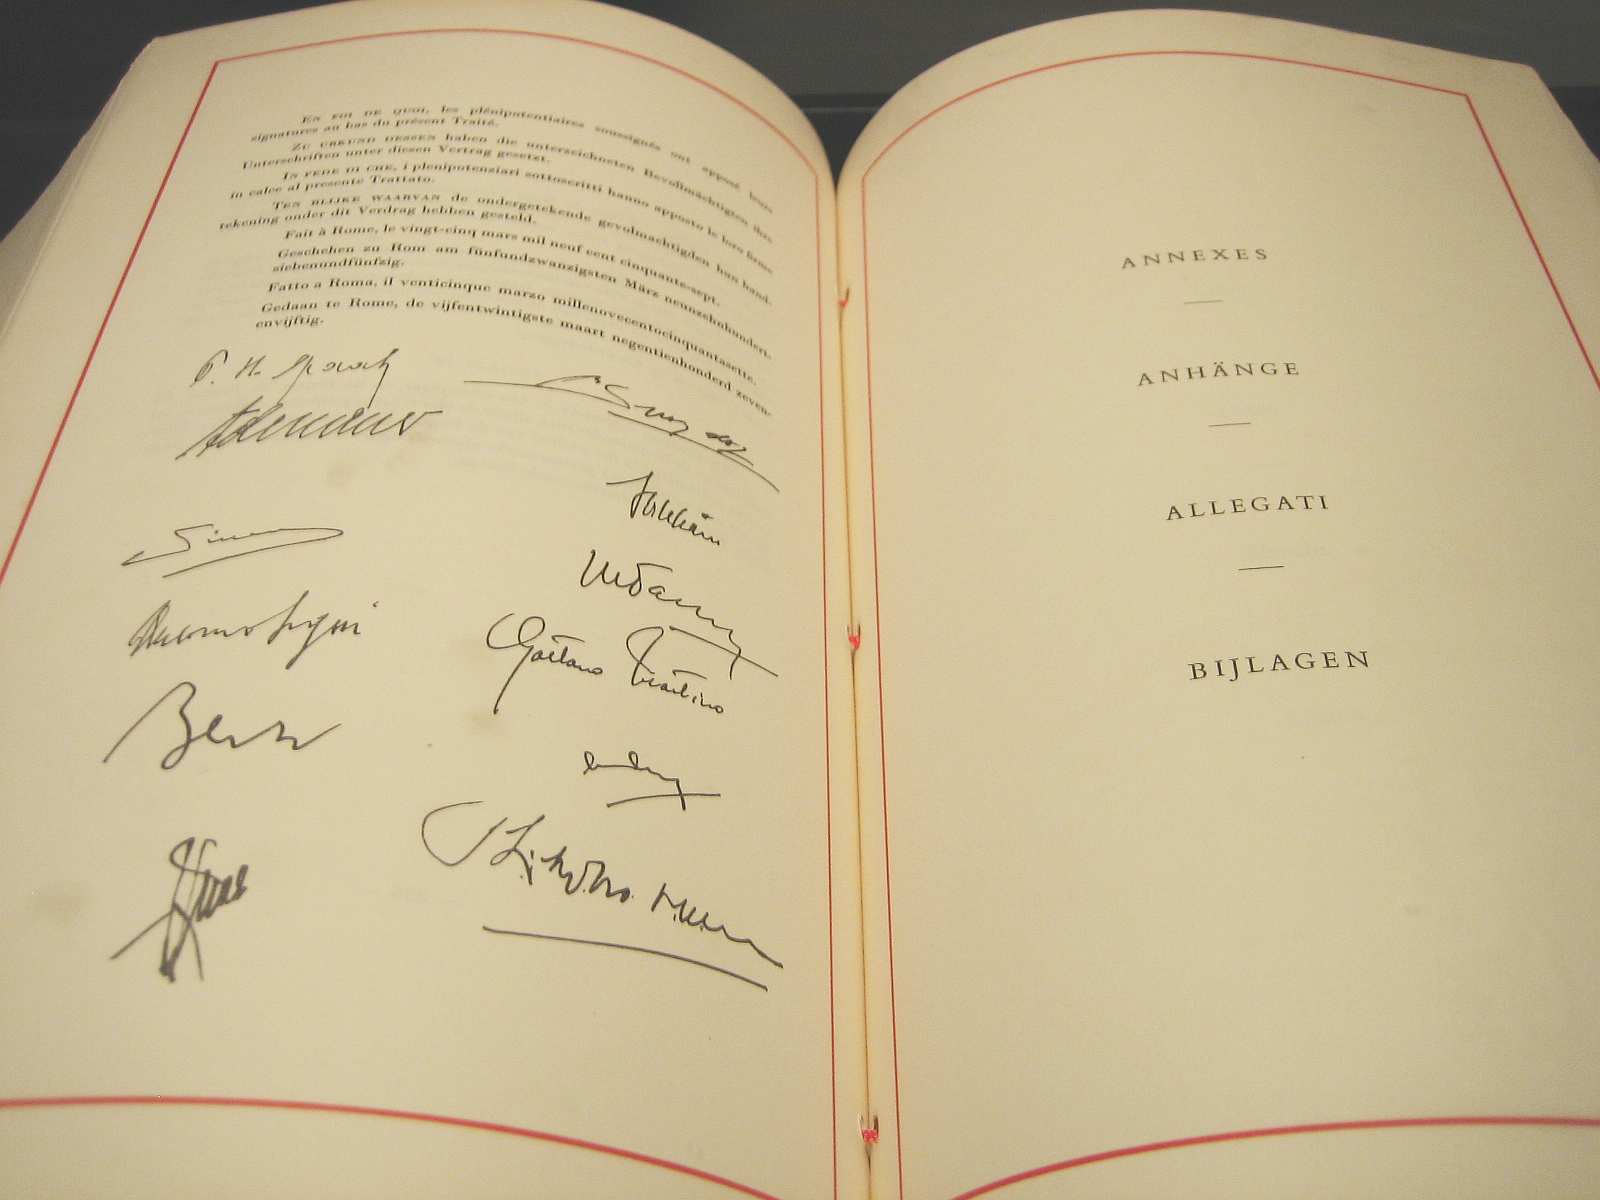 EN FOI DE QUOI, les plénipotentiaires soussignés ont apposé leurs
signatures au bas du présent Traité.
ZU URKUND DESSEN haben die unterzeichneten Bevollmächtigten ihre
Unterschriften unter diesen Vertrag gesetzt.
IN FEDE DI CHE, i plenipotenziari sottoscritti hanno apposto le loro firme
in calce al presente Trattato.
TEN BLIJKE WAARVAN de ondergetekende gevolmachtigden hun hand-
tekening onder dit Verdrag hebben gesteld.
Fait à Rome, le vingt-cinq mars mil neuf cent cinquante-sept.
Geschehen zu Rom am fünfundzwanzigsten März neunzehnhundert-
siebenundfünfzig.
Fatto a Roma, il venticinque marzo millenovecentocinquantasette.
Gedaan te Rome, de vijfentwintigste maart negentienhonderd zeven-
envijftig.
P. H. Spaak
Adenauer
Pineau
Antonio Segni
Bech
Gaetano Martino
ANNEXES
ANHÄNGE
ALLEGATI
BIJLAGEN